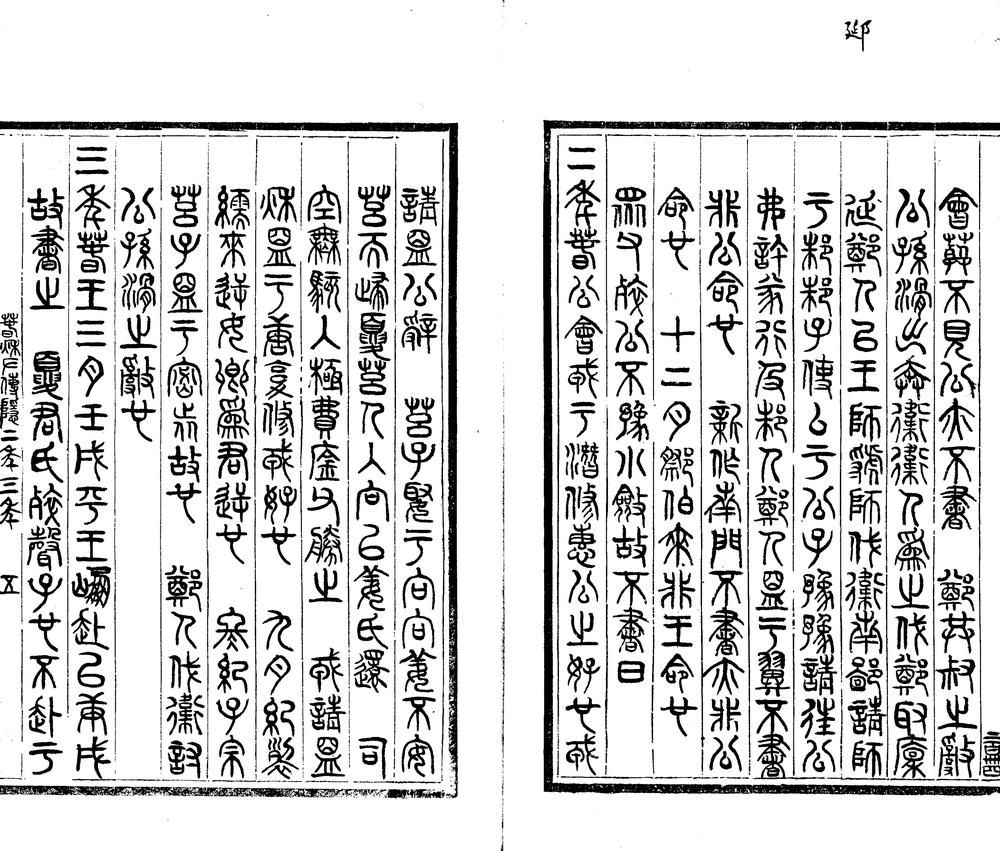 郔
會葬不見公亦不書 鄭共叔之亂
公孫滑出奔衞衞人爲之伐鄭取廩
延鄭人以王師虢師伐衞南鄙請師
于邾邾子使私于公子豫豫請往公
弗許遂行及邾人鄭人盟于翼不書
非公命也 新作南門不書亦非公
命也 十二月祭伯來非王命也
衆父卒公不豫小斂故不書日
二年春公會戎于潛修惠公之好也戎
請盟公辭 莒子娶于向向姜不安
莒而歸夏莒人入向以姜氏還 司
空無駭入極費庈父勝之 戎請盟
秋盟于唐复修戎好也 九月紀裂
繻來逆女卿爲君逆也 冬紀子帛
莒子盟于密魯故也 鄭人伐衞討
公孫滑之亂也
三年春王三月壬戌平王崩赴以庚戌
故書之 夏君氏卒聲子也不赴于
春秋左傳隱二年三年 五